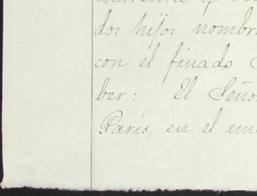 dos hijos nombr
con el finado
ber: El Seño
Paris, en el em